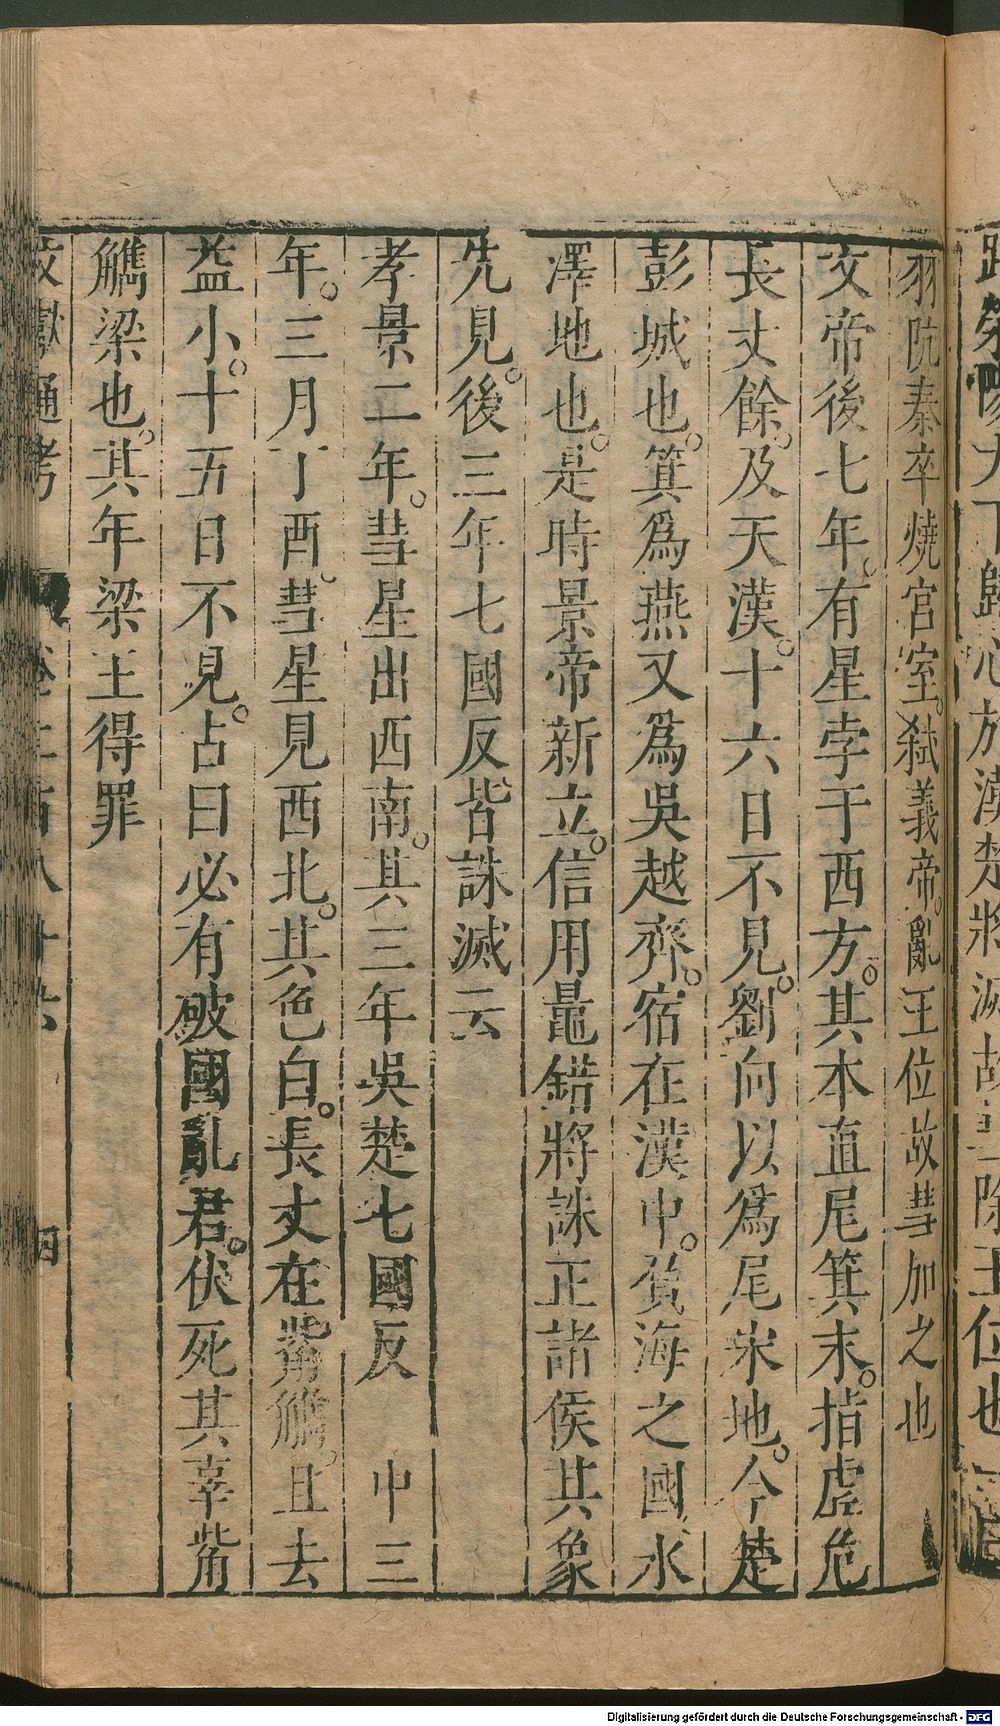 羽阬秦卒燒宮室。弑義帝。亂王位故彗加之也
文帝後七年。有星孛于西方。其本直尾箕末。指虛危
長丈餘。及天漢。十六日不見。劉向以爲尾宋地。今楚
彭城也。箕爲燕又爲吳越齊。宿在漢中。負海之國水
澤地也。是時景帝新立。信用鼂錯將誅正諸侯其象
先見。後三年七國反皆誅滅云
孝景二年。彗星出西南。其三年吳楚七國反　中三
年。三月丁酉。彗星見西北。其色白。長丈在觜觿。且去
益小。十五日不見。占曰必有破國亂君。伏死其辜觜
觿梁也。其年梁王得罪
文獻通考　卷二百八十六　四
Digitalisierung gefördert durch die Deutsche Forschungsgemeinschaft - DFG